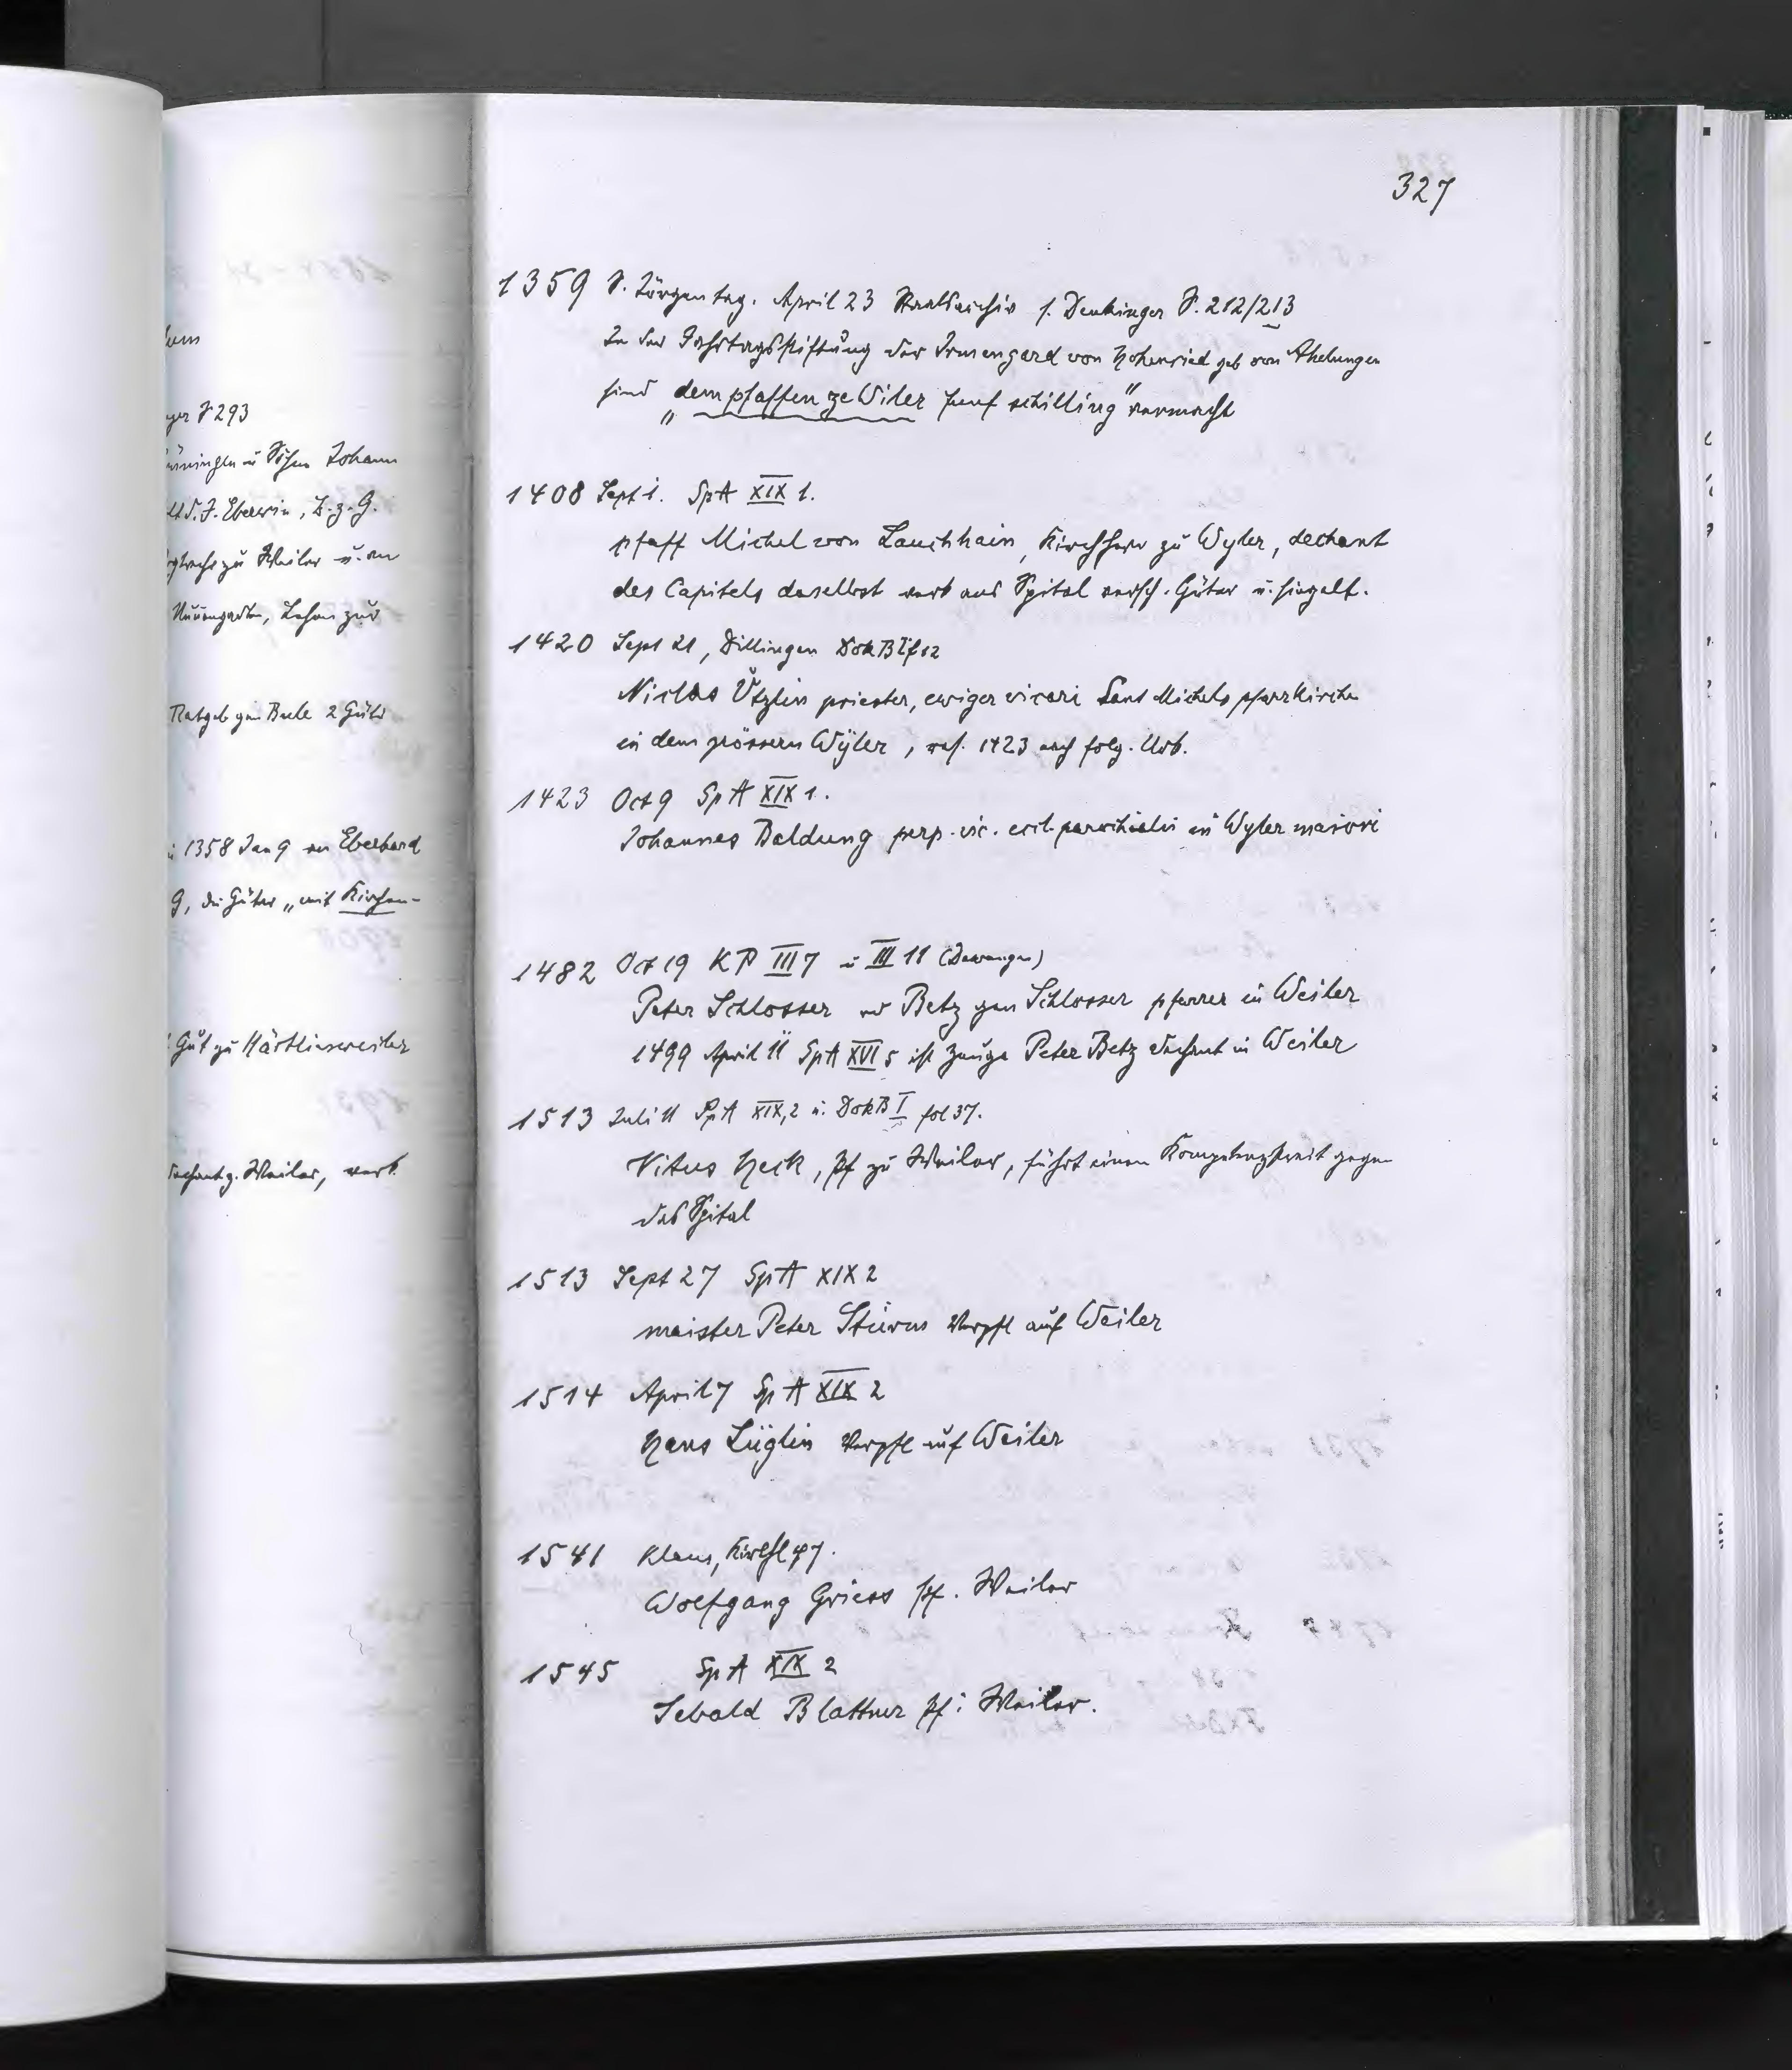 327
1359 S. Jörgentag. April 23 Staatsarchiv s. Denkinger S. 212/213
In der Jahrtagsstiftung der Irmengard von Hohenried geb von Ahelingen
sind „dem pfaffen ze Wiler funf schilling" vermacht
1408 Sept 1. SpA XIX 1.
pfaff Michel von Lauchhain, Kirchherr zu Wyler, dechant
des Capitels daselbst verk ans Spital versch. Güter u. siegelt.
1420 Sept 21, Dillingen DokB I f 12
Niclas Ützlin priester, ewiger vicari Sant Michels pfarrkirche
in dem grössern Wÿler, 1423 folg. Urk.
1423 Oct 9 SpA XIX 1.
Johannes Baldung perp. vic. eccl. parochialis in Wyler maiori
1482 Oct 19 KP III 7 u III 11 (Dewangen)
Peter Schlosser od Betz gen Schlosser pfarrer in Weiler
1499 April 11 SpA XVI 5 ist Zeuge Peter Betz dechant in Weiler
1513 Juli 11 SpA XIX,2 u. DokB I fol 37.
Vitus Heck, Pf zu Weiler, führt einen Kompetenzstreit gegen
das Spital
1513 Sept 27 SpA XIX 2
maister Peter Sturm Verpfl auf Weiler
1514 April 7 SpA XIX 2
Hans Lüglin Verpfl auf Weiler
1541 Klaus, KirchL 97.
Wolfgang Griess Pf. Weiler
1545 SpA XIX 2
Sebald Blattner Pf i Weiler.
S 293
u Söhne Johann
Eberwin, B. z. G.
zu Weiler u. an
Lehen zur
2 Güter
1358 Jan 9 von Eberhard
G, die Güter „mit Kirchen-
Gut zu Härtlinsweiler
z. Weiler, verk.